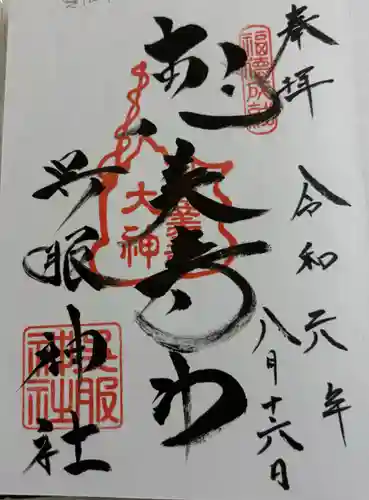 奉拝
令和元年
八月十六日
福徳成就
恵美寿
大神
呉服神社
呉服神社